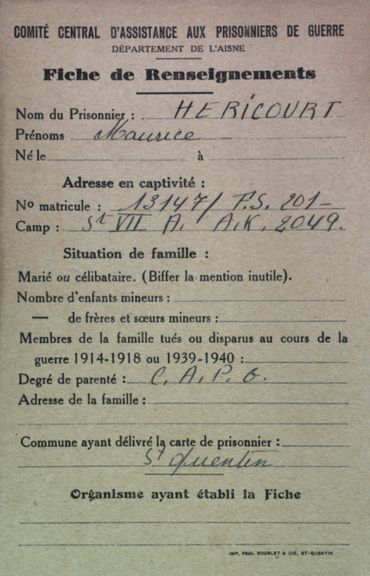 COMITÉ CENTRAL D'ASSISTANCE AUX PRISONNIERS DE GUERRE
DÉPARTEMENT DE L'AISNE
Fiche de Renseignements
Nom du Prisonnier : HERICOURT
Prénoms Maurice
Né le à
Adresse en captivité :
No matricule : 13147/ F.S. 201-
Camp : St VII A. A.K. 2049.
Situation de famille :
Marié ou célibataire. (Biffer la mention inutile).
Nombre d'enfants mineurs :
— de frères et sœurs mineurs :
Membres de la famille tués ou disparus au cours de la
guerre 1914-1918 ou 1939-1940 :
Degré de parenté : C. A. P. O.
Adresse de la famille :
Commune ayant délivré la carte de prisonnier :
St Quentin
Organisme ayant établi la Fiche
IMP. PAUL BOURLET & CIE, ST-QUENTIN